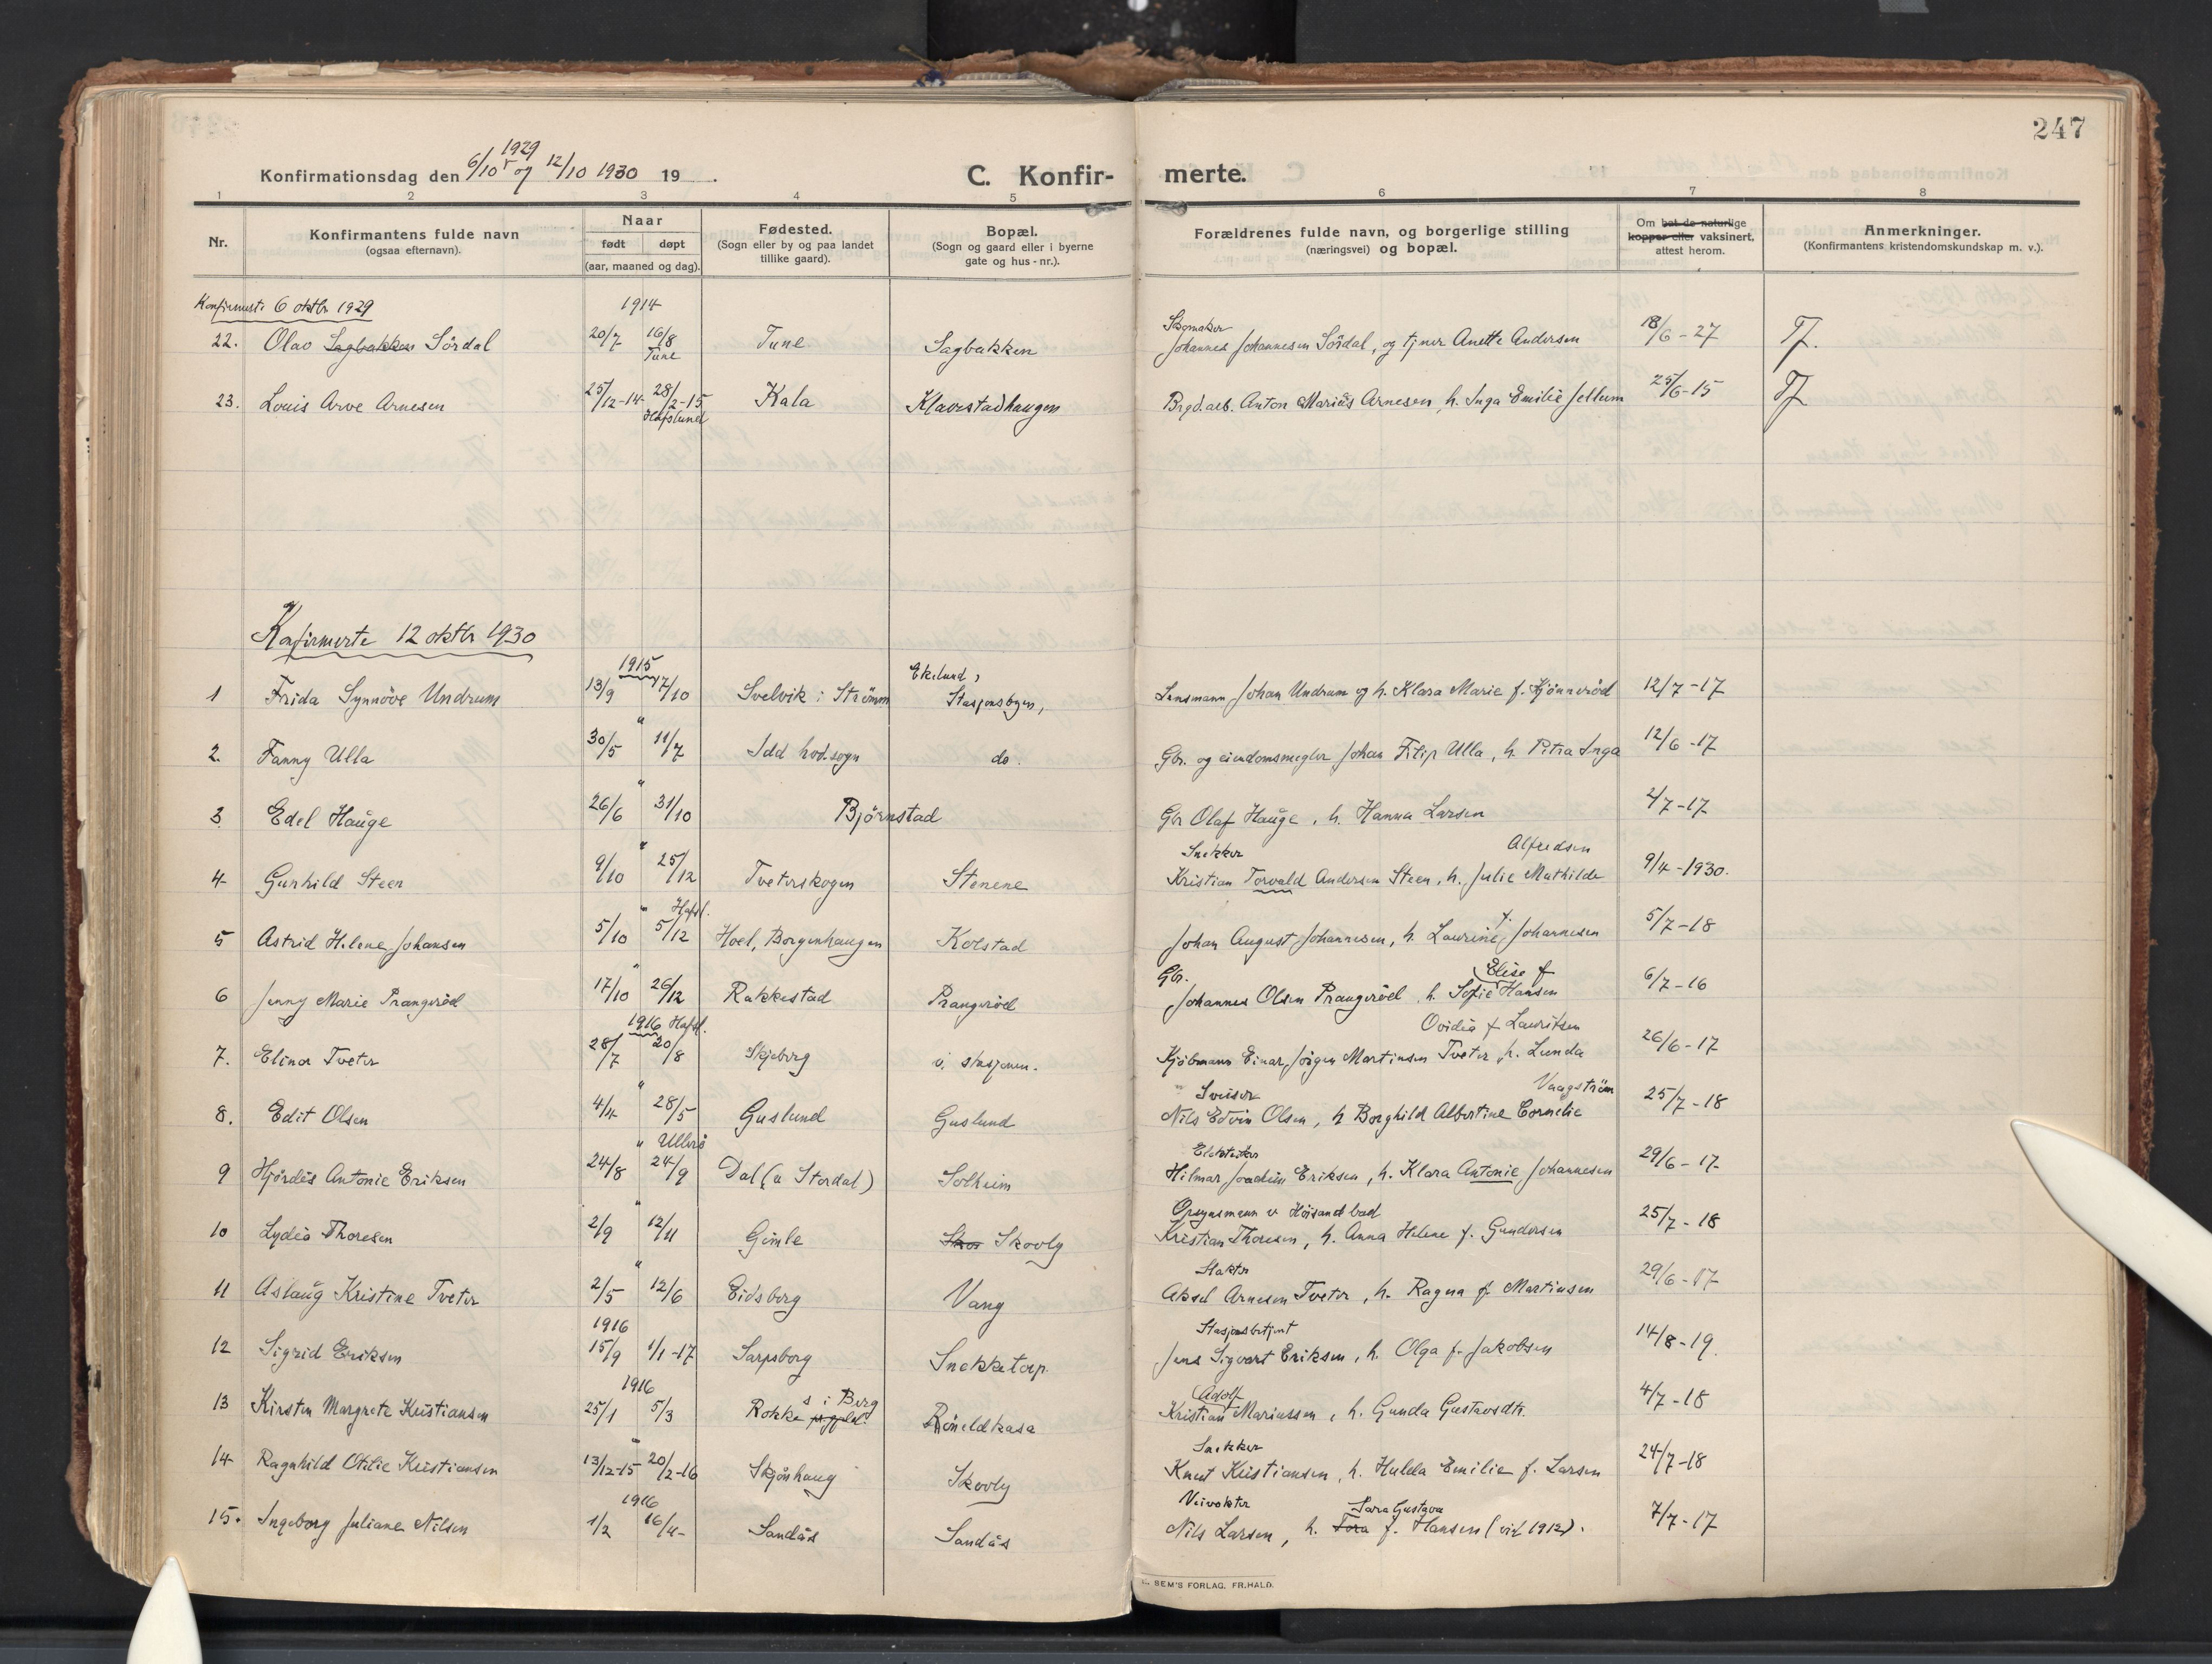 247
Konfirmationsdag den 6/10 1929 og 12/10 1930 19 .
C. Konfir- merte.
1 2 3 4 5 6 7 8
Nr.
Konfirmantens fulde navn
(ogsaa efternavn).
Naar
født døpt
(aar, maaned og dag).
Fødested.
(Sogn eller by og paa landet
tillike gaard).
Bopæl.
(Sogn og gaard eller i byerne
gate og hus - nr.).
Forældrenes fulde navn, og borgerlige stilling
(næringsvei) og bopæl.
Om hat de naturlige
kopper eller vaksinert,
attest herom.
Anmerkninger.
(Konfirmantens kristendomskundskap m. v.).
Konfirmert: 6 oktbr 1929 1914
22. Olav Sagbakken Sördal 20/7 16/8 Tune Tune Sagbakken Skomaker Johannes Johannesen Sördal, og tjener Anette Andersen 18/6-27 Tf.
23. Louis Arve Arnesen 25/12-14 28/2-15 Hafslund Kala Klavestadhaugen Brgd.arb. Anton Marius Arnesen, h. Inga Emilie Jellum 25/6-15 Tf
Konfirmerte 12 oktbr 1930
1915
1 Frida Synnöve Undrum 13/9 17/10 Svelvik i Strömm Ekelund, Stasjonsbyen, Lensmann Johan Undrum og h. Klara Marie f. Kjönneröd 12/7-17
2. Fanny Ulla 30/5 " 11/7 Idd hvd.sogn do. Gbr. og eiendomsmegler Johan Filip Ulla, h. Petra Inga 12/6-17
3. Edel Hauge 26/6 " 31/10 Björnstad Gbr Olaf Hauge, h. Hanna Larsen 2/7-17
4 Gunhild Steen 9/10 " 25/12 Tveterskogen Stenene Snekker Kristian Torvald Andersen Steen, h. Julie Mathilde Alfredsen 9/4-1930.
5 Astrid Helene Johansen 5/10 " 5/12 Hafsl. Hoel, Borgenhaugen Kolstad Johan August Johannesen, h. Laurine f. Johannesen 5/7-18
6 Jenny Marie Prangeröd 17/10 " 26/12 Rakkestad Prangeröd Gbr. Johannes Olsen Prangeröd, h. Sofie Elise f Hansen 6/7-16
1916 Hafsl.
7. Elinor Tveter 28/7 20/8 Skjeberg v. stasjonen. Kjöbmann Einar Jörgen Martinsen Tveter, h. Lunda Ovidia f Lauritsen 26/6-17
8. Edit Olsen 4/4 " 28/5 Guslund Guslund Sveiser Nils Edvin Olsen, h Borghild Albertine Cornelie Vaagström 25/7-18
9 Hjördis Antonie Eriksen 24/8 " 24/9 Ullerö Dal (u Stordal) Solheim Elektriker Hilmar Joachim Eriksen, h. Klara Antonie Johannesen 29/6-17
10 Lydia Thoresen 2/9 " 12/11 Gimle Skov Skovly Opsynsmann v Höisand bad Kristian Thoresen, h. Anna Helene f. Gundersen 25/7-18
11 Aslaug Kristine Tveter 2/5 " 12/6 Eidsberg Vang Slakter Aksel Arnesen Tveter, h. Ragna f Martinsen 29/6-17
1916
12 Sigrid Eriksen 15/9 1/1-17 Sarpsborg Snekketorp. Stasjonsbetjent Jens Sigvart Eriksen, h. Olga f. Jakobsen 14/8-19.
1916
13 Kirsten Margrete Kristiansen 25/1 5/3 Rokke s i Berg Röneldkasa Kristian Adolf Mariussen, h. Gunda Gustavsdtr. 4/7-18
14 Ragnhild Otilie Kristiansen 13/12-15 20/2-16 Skjönhaug Skovly Snekker Knut Kristiansen, h. Hulda Emilie f. Larsen 24/7-18
1916
15. Ingeborg Juliane Nilsen 1/2 16/4- Sandås Sandås Veivokter Nils Larsen, h. Tora Sara Gustava f. Hansen (vid 1912). 7/7-17
SEM'S FORLAG. FR.HALD.